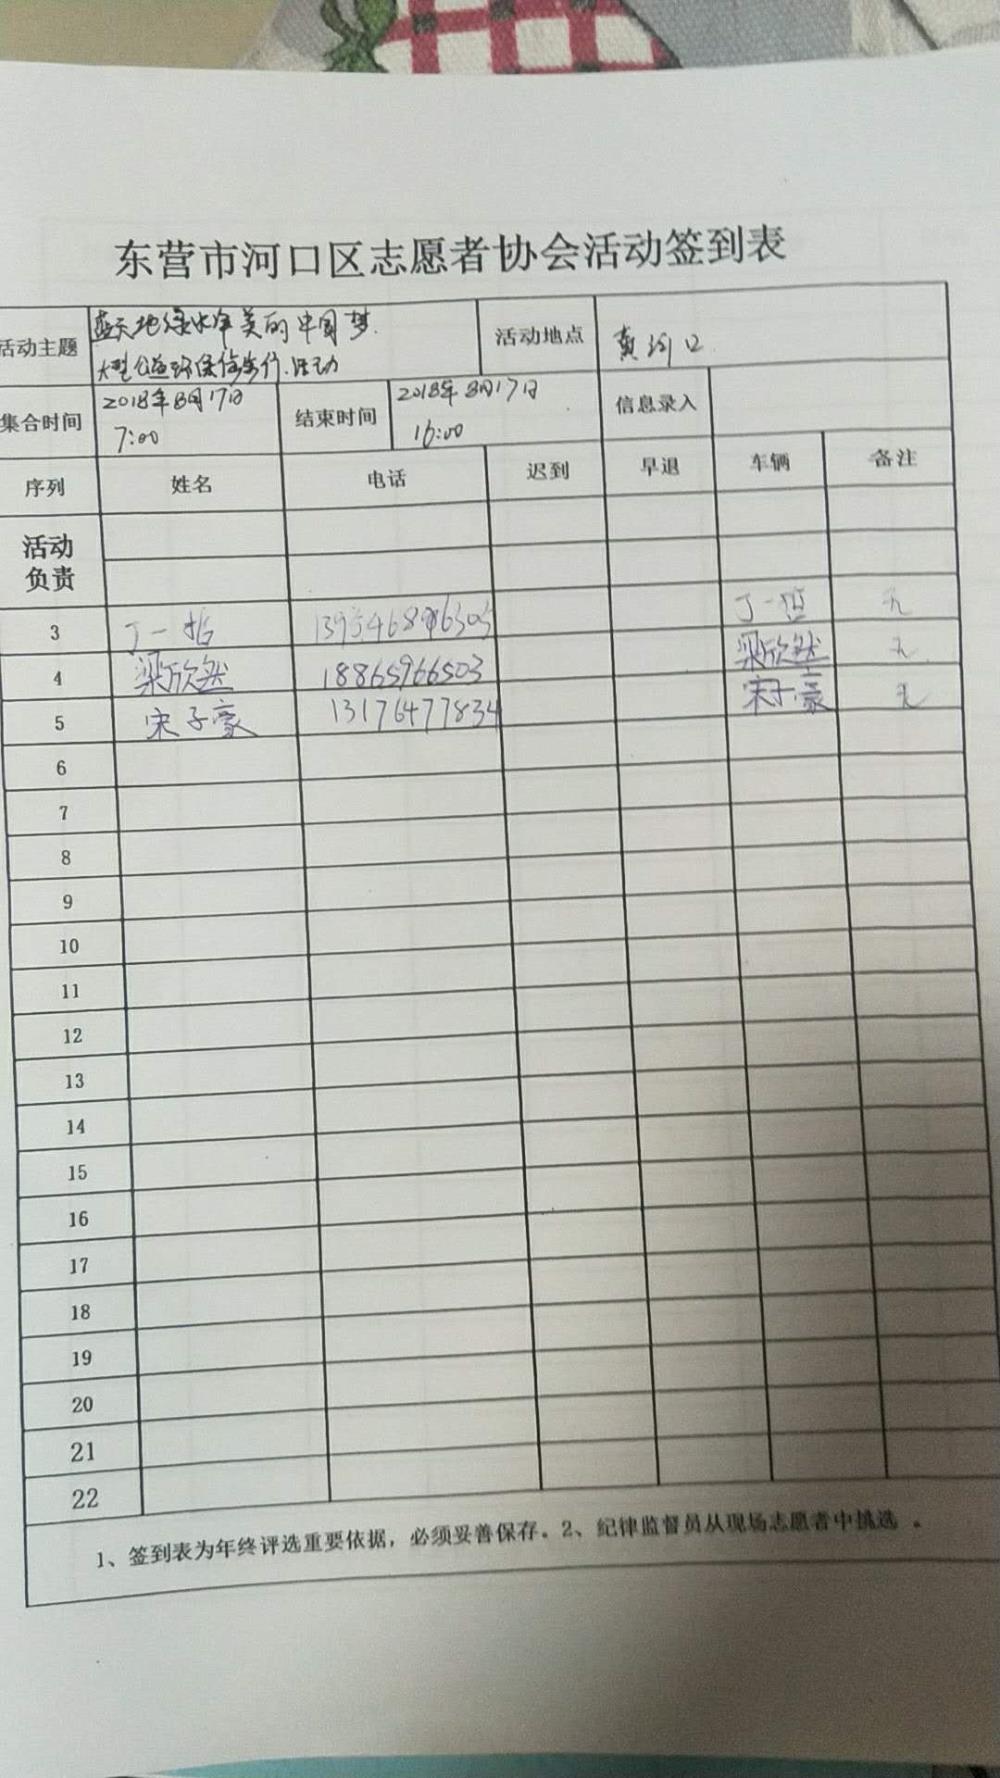 东营市河口区志愿者协会活动签到表
活动主题 蓝天地绿水净美的中国梦. 活动地点 黄河口
大型公益环保 活动
集合时间 2018年8月17日 7:00 结束时间 2018年8月17日 16:00 信息录入
序列 姓名 电话 迟到 早退 车辆 备注
活动
负责
3 丁一哲 丁一哲 无
4 梁欣然 18865966503 梁欣然 无
5 宋子豪 13176477834 宋子豪 无
6
7
8
9
10
11
12
13
14
15
16
17
18
19
20
21
22
1、签到表为年终评选重要依据，必须妥善保存。2、纪律监督员从现场志愿者中挑选 。